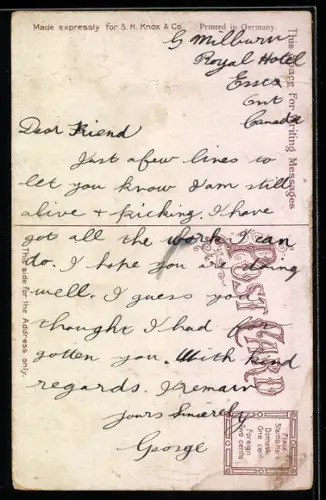 Made expressly for S. H. Knox & Co. Printed in Germany.
G Milburn
Royal Hotel
Essex
Ont
Canada
Dear Friend
Just a few lines to
let you know I am still
alive + kicking. I have
got all the work I can
do. I hope you are doing
well. I guess you
thought I had for
gotten you. With kind
regards. I remain
Yours Sincerely
George
This Space For Writing Messages
POST CARD
This side for the Address only.
Place
Stamp Here
Domestic
One cent
Foreign
Two cents